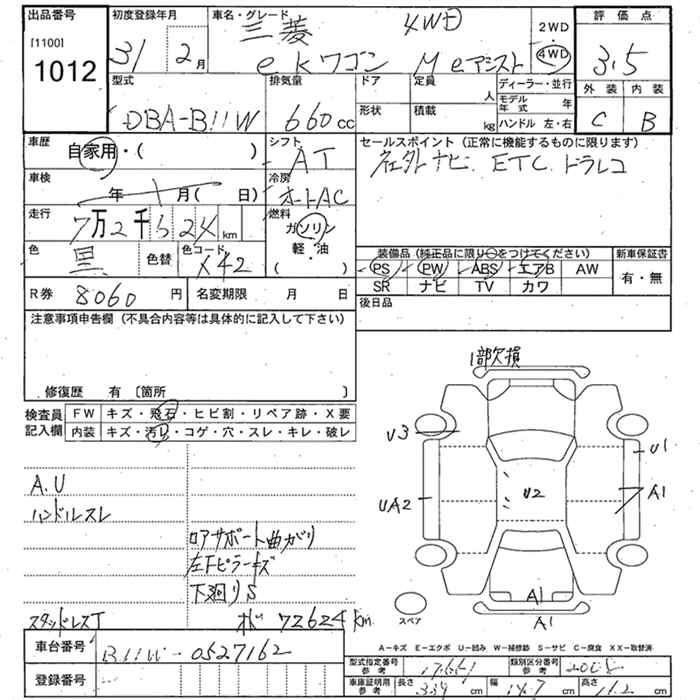 出品番号 初度登録年月 車名・グレード 評価点
[1100] 1012
31 2月
三菱 4WD
eKワゴン M eアシスト
2WD
4WD
3.5
外装 内装
C B
型式 排気量 ドア 定員 人 ディーラー・並行
DBA-B11W 660cc
形状 積載 kg モデル年式 年
ハンドル 左・右
車歴 自家用・( )
シフト AT
セールスポイント(正常に機能するものに限ります)
社外ナビ. ETC. ドラレコ
車検 年 月( 日)
冷房 オートAC
走行 7万2千524km
燃料 ガソリン 軽・油 ( )
色 黒 色替 色コード X42
装備品(純正品に限り○をつけてください) 新車保証書
PS PW ABS エアB AW 有・無
SR ナビ TV カワ
R券 8060円 名変期限 月 日
後日品
注意事項申告欄(不具合内容等は具体的に記入して下さい)
修復歴 有 〔箇所 〕
検査員記入欄
FW キズ・飛石・ヒビ割・リペア跡・X要
内装 キズ・汚レ・コゲ・穴・スレ・キレ・破レ
1部欠損
U3
U1
UA2
U2
A1
A1
A1
スペア
A.U
ハンドルスレ
ロアサポート曲がり
左Fピラーキズ
下廻りS
スタッドレスT
72624km
A-キズ E-エクボ U-凹み W-補修跡 S-サビ C-腐食 XX-取替済
車台番号 B11W-0527162
登録番号
型式指定番号 参考 17661 類別区分番号 参考
車庫証明用 参考 長さ 339cm 幅 147cm 高さ cm